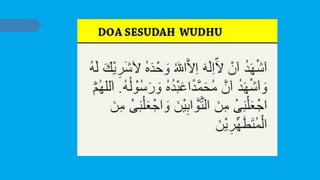 DOA SESUDAH WUDHU
اَشْهَدُ اَنْ لاَّاِلٰهَ اِلاَّاللهُ وَحْدَهُ لاَشَرِيْكَ لَهُ
وَاَشْهَدُ اَنَّ مُحَمَّدًاعَبْدُهُ وَرَسُوْلُهُ. اَللهُمَّ
اجْعَلْنِىْ مِنَ التَّوَّابِيْنَ وَاجْعَلْنِىْ مِنَ
الْمُتَطَهِّرِيْنَ